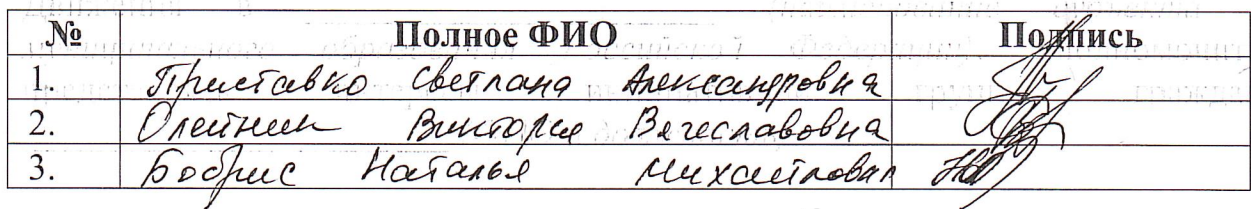 № Полное ФИО Подпись
1. Приставко Светлана Александровна
2. Олейник Виктория Вячеславовна
3. Наталья Михайловна